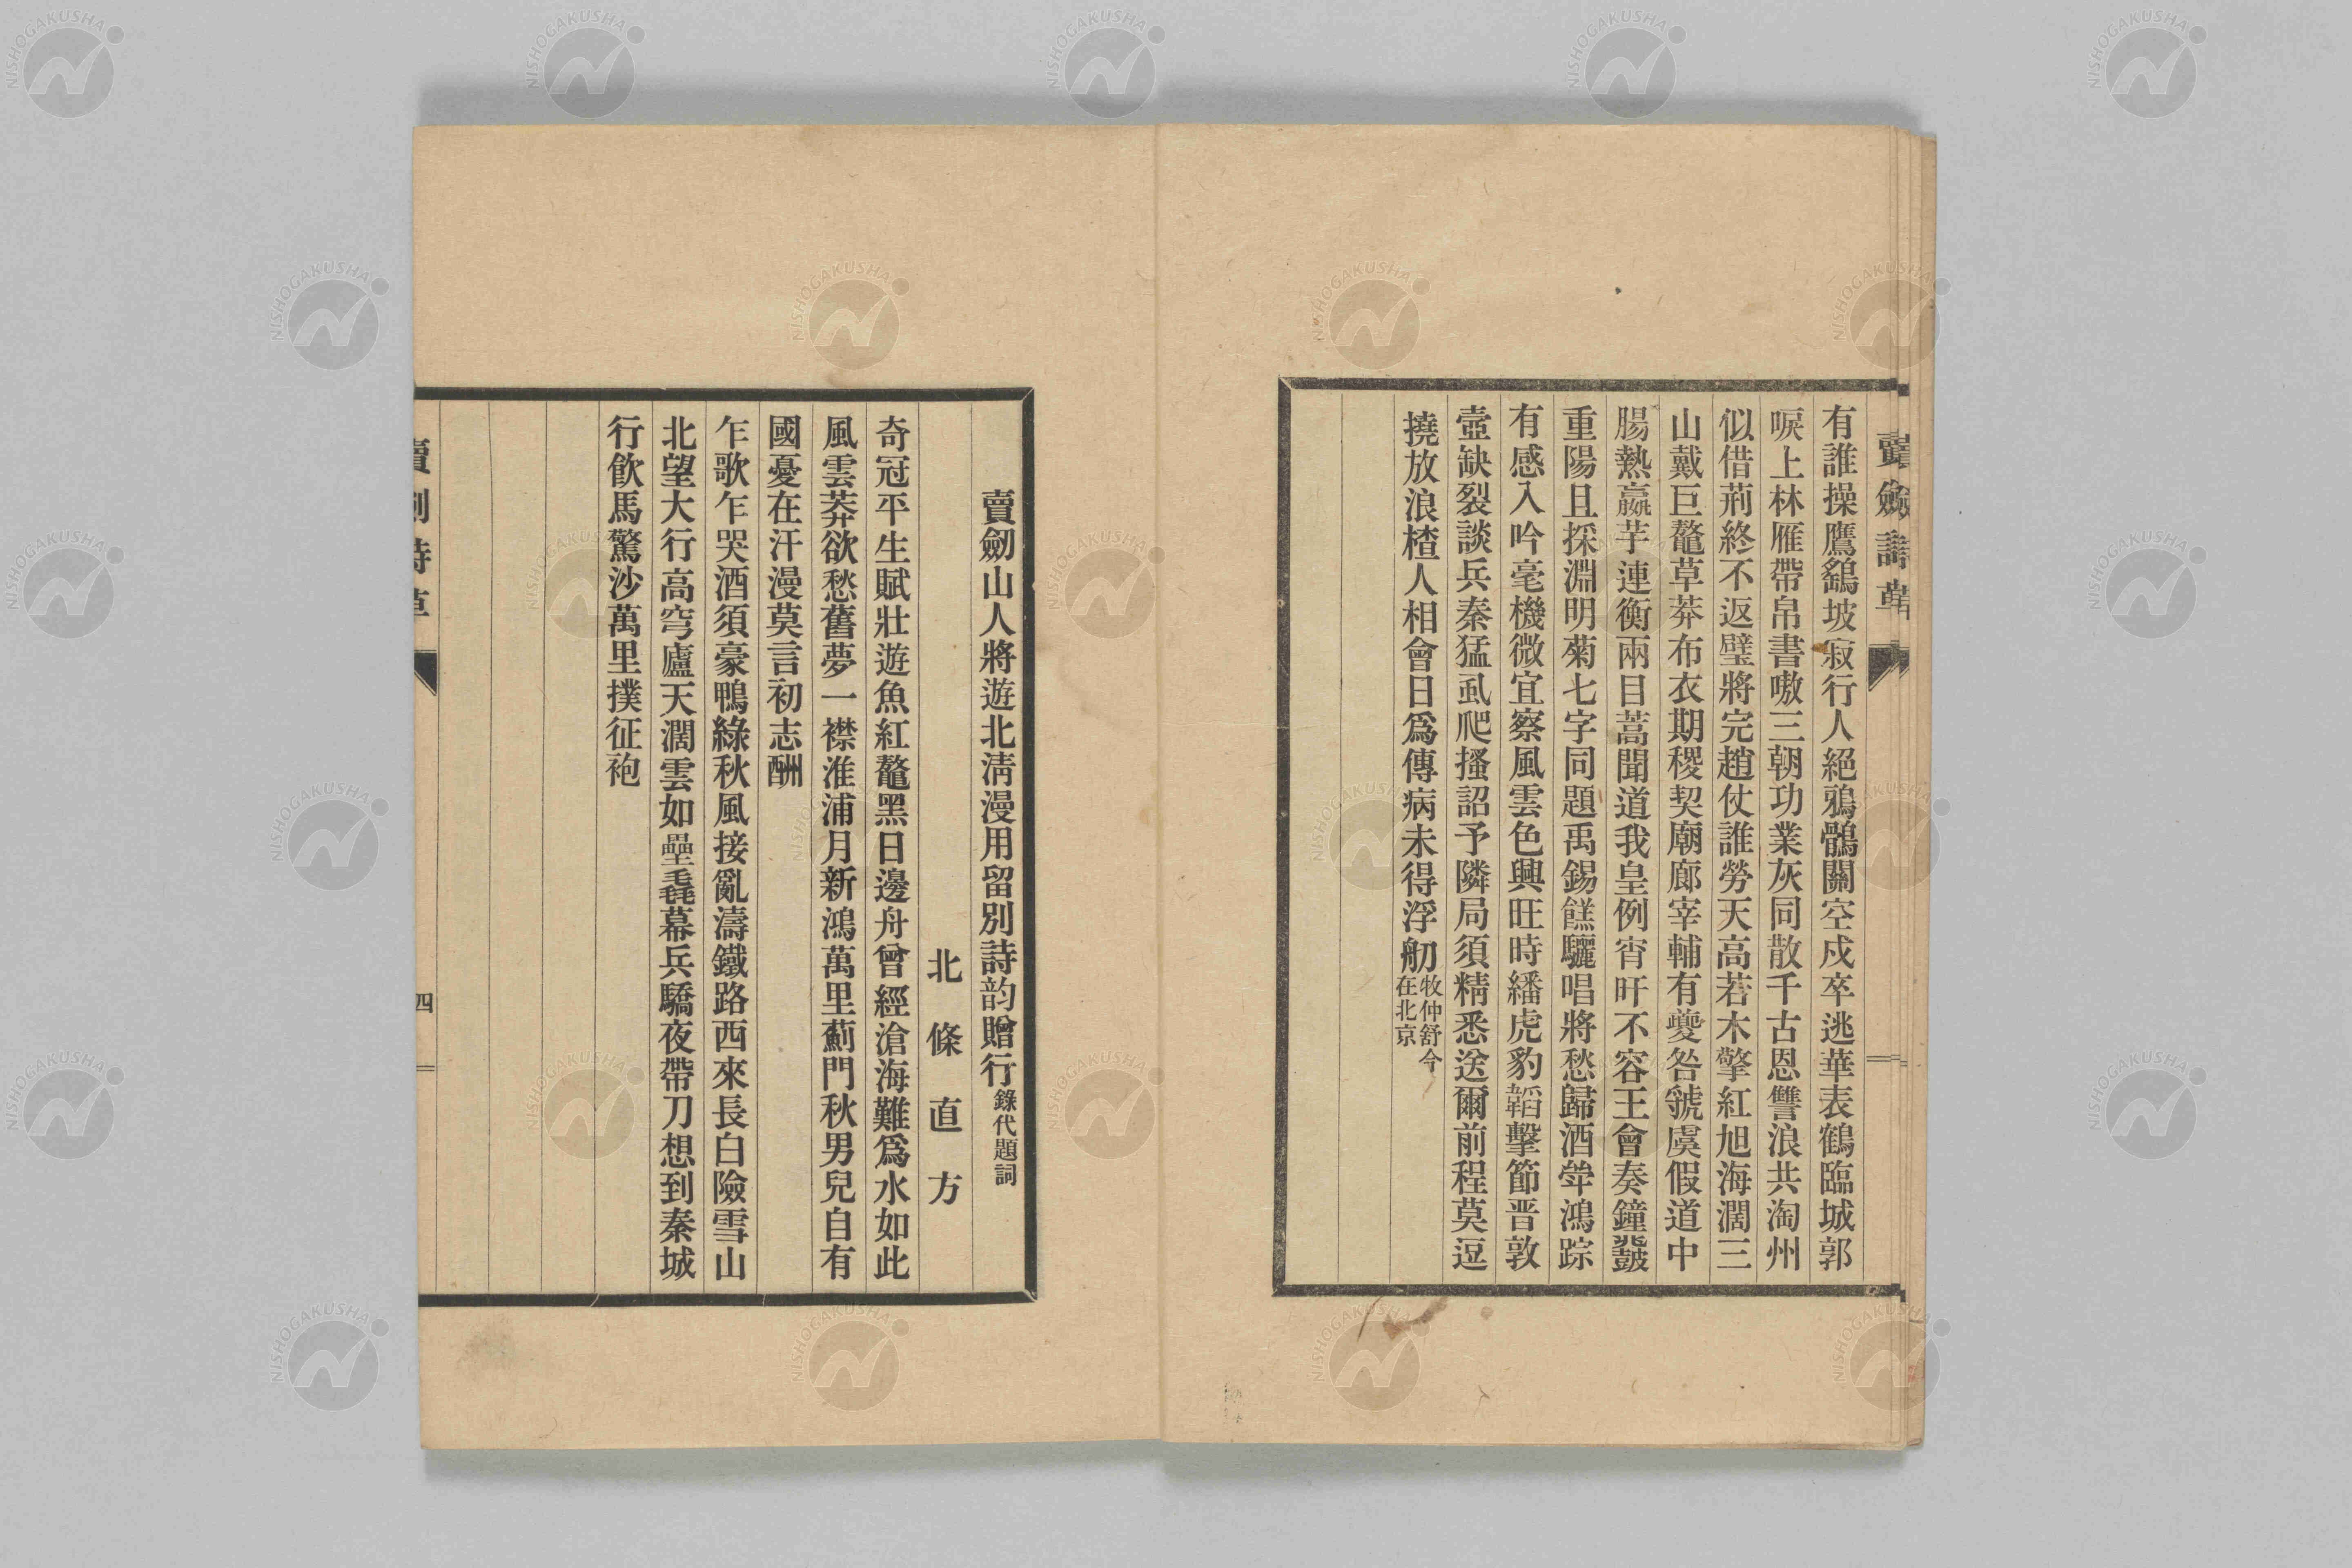 賣劒詩草
有誰操鷹鷂坡寂行人絕鴉鶻關空戍卒逃華表鶴臨城郭
唳上林雁帶帛書嗷三朝功業灰同散千古恩讐浪共淘州
似借荊終不返璧將完趙仗誰勞天高若木擎紅旭海濶三
山戴巨鼇草莽布衣期稷契廟廊宰輔有夔咎虢虞假道中
腸熱嬴芉連衡兩目蒿聞道我皇例宵旰不容王會奏鐘鼛
重陽且採淵明菊七字同題禹錫餻驪唱將愁歸酒斝鴻踪
有感入吟毫機微宜察風雲色興旺時繙虎豹韜擊節晋敦
壺缺裂談兵秦猛虱爬搔詔予隣局須精悉送爾前程莫逗
撓放浪楂人相會日爲傳病未得浮舠牧仲舒今在北京
賣劒山人將遊北淸漫用留別詩韵贈行錄代題詞
北條直方
奇冠平生賦壯遊魚紅鼇黑日邊舟曾經滄海難爲水如此
風雲莽欲愁舊夢一襟淮浦月新鴻萬里薊門秋男兒自有
國憂在汗漫莫言初志酬
乍歌乍哭酒須豪鴨綠秋風接亂濤鐵路西來長白險雪山
北望大行高穹廬天濶雲如壘毳幕兵驕夜帶刀想到秦城
行飮馬驚沙萬里撲征袍
賣劒詩草
四
NISHOGAKUSHA